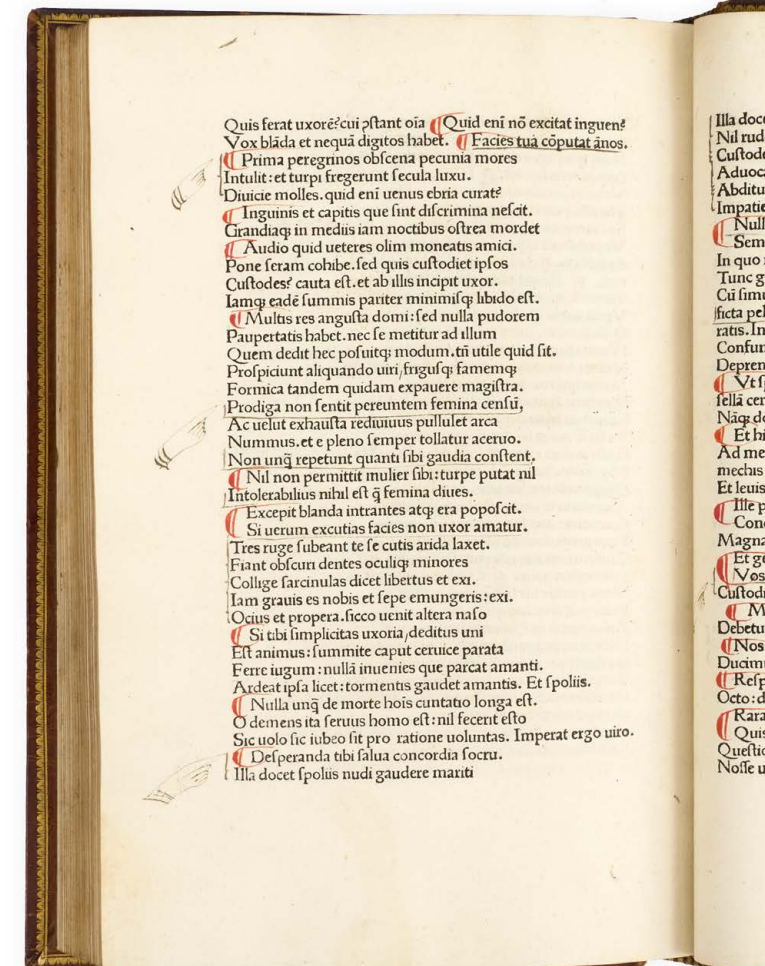 Quis ferat uxorē?cui ꝯſtant oīa ¶Quid enī nō excitat inguen?
Vox blāda et nequā digitos habet. ¶Facies tuā cōputat ānos.
¶ Prima peregrinos obſcena pecunia mores
Intulit:et turpi fregerunt ſecula luxu.
Diuicie molles.quid enī uenus ebria curat?
¶ Inguinis et capitis que ſint diſcrimina neſcit.
Grandiaqꝫ in mediis iam noctibus oſtrea mordet
¶ Audio quid ueteres olim moneatis amici.
Pone ſeram cohibe.ſed quis cuſtodiet ipſos
Cuſtodes? cauta eſt.et ab illis incipit uxor.
Iamqꝫ eadē ſummis pariter minimiſqꝫ libido eſt.
¶ Multis res anguſta domi:ſed nulla pudorem
Paupertatis habet.nec ſe metitur ad illum
Quem dedit hec poſuitqꝫ modum.tn̄ utile quid ſit.
Proſpiciunt aliquando uiri,friguſqꝫ famemqꝫ
Formica tandem quidam expauere magiſtra.
Prodiga non ſentit pereuntem femina cenſū,
Ac uelut exhauſta rediuiuus pullulet arca
Nummus.et e pleno ſemper tollatur aceruo.
Non unq̄ repetunt quanti ſibi gaudia conſtent.
¶ Nil non permittit mulier ſibi:turpe putat nil
Intolerabilius nihil eſt q̄ femina diues.
¶ Excepit blanda intrantes atqꝫ era popoſcit.
¶ Si uerum excutias facies non uxor amatur.
Tres ruge ſubeant te ſe cutis arida laxet.
Fiant obſcuri dentes oculiqꝫ minores
Collige ſarcinulas dicet libertus et exi.
Iam grauis es nobis et ſepe emungeris:exi.
Ocius et propera.ſicco uenit altera naſo
¶ Si tibi ſimplicitas uxoria,deditus uni
Eſt animus:ſummite caput ceruice parata
Ferre iugum:nullā inuenies que parcat amanti.
Ardeat ipſa licet:tormentis gaudet amantis. Et ſpoliis.
¶ Nulla unq̄ de morte hois cuntatio longa eſt.
O demens ita ſeruus homo eſt:nil fecerit eſto
Sic uolo ſic iubeo ſit pro ratione uoluntas. Imperat ergo uiro.
¶ Deſperanda tibi ſalua concordia ſocru.
Illa docet ſpoliis nudi gaudere mariti
Nil rud
Impatie
¶ Null
¶ Sem
In quo
Tunc g
Cū ſimu
ratis.In
Confun
Depren
¶ Vt ſ
Et hi
Ad me
mechis
Et leuis
¶ Ille p
Conc
Magna
¶ Et ge
Vos
Cuſtodi
¶ M
Debetu
¶Nos
Ducim
¶Reſp
Octo:d
¶Rara
Quis
Queſtio
Noſſe u